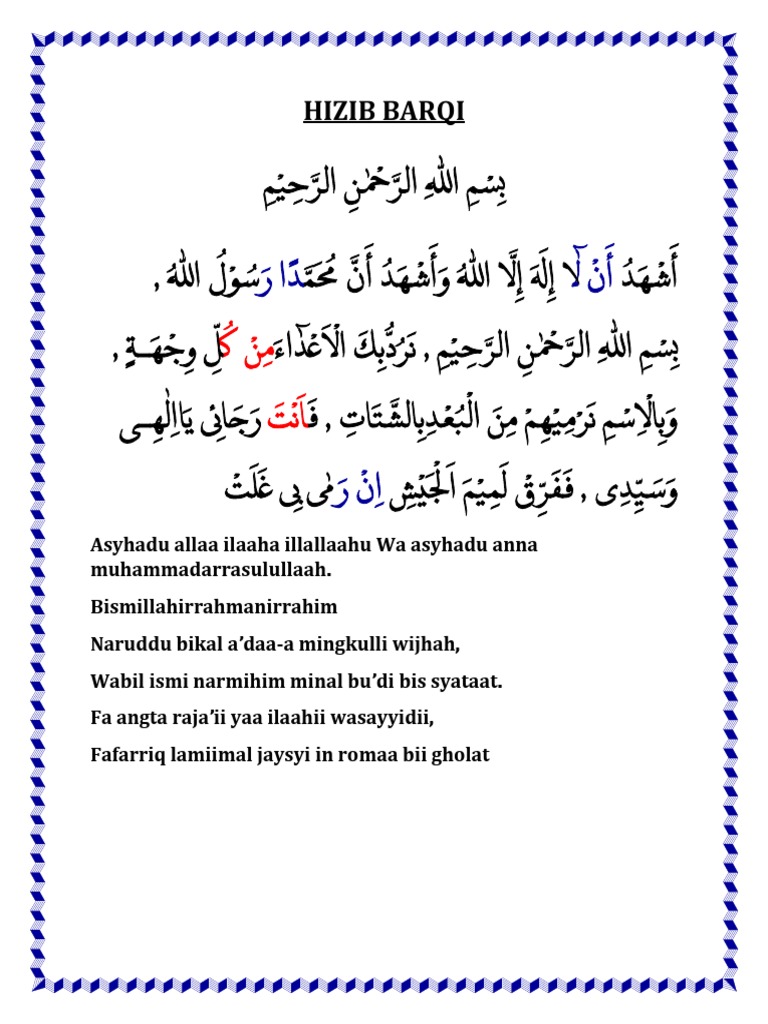 HIZIB BARQI
بِسْمِ اللهِ الرَّحْمٰنِ الرَّحِيْمِ
أَشْهَدُ أَنْ لَٓا إِلَهَ إِلَّا اللهُ وَأَشْهَدُ أَنَّ مُحَمَّدًا رَسُوْلُ اللهُ ,
بِسْمِ اللهِ الرَّحْمٰنِ الرَّحِيْمِ , نَرُدُّبِكَ الْاَعْدَٓاءَمِنْ كُلِّ وِجْهَـةٍ ,
وَبِالْاِسْمِ نَرْمِيْهِمْ مِنَ الْبُعْدِبِالشَّتَاتِ , فَاَنْتَ رَجَائِيْ يَااِلٰهِـى
وَسَيِّدِى , فَفَرِّقْ لَمِيْمَ اَلْجَيْشِ اِنْ رَمٰى بِى غَلَتْ
Asyhadu allaa ilaaha illallaahu Wa asyhadu anna
muhammadarrasulullaah.
Bismillahirrahmanirrahim
Naruddu bikal a’daa-a mingkulli wijhah,
Wabil ismi narmihim minal bu’di bis syataat.
Fa angta raja’ii yaa ilaahii wasayyidii,
Fafarriq lamiimal jaysyi in romaa bii gholat